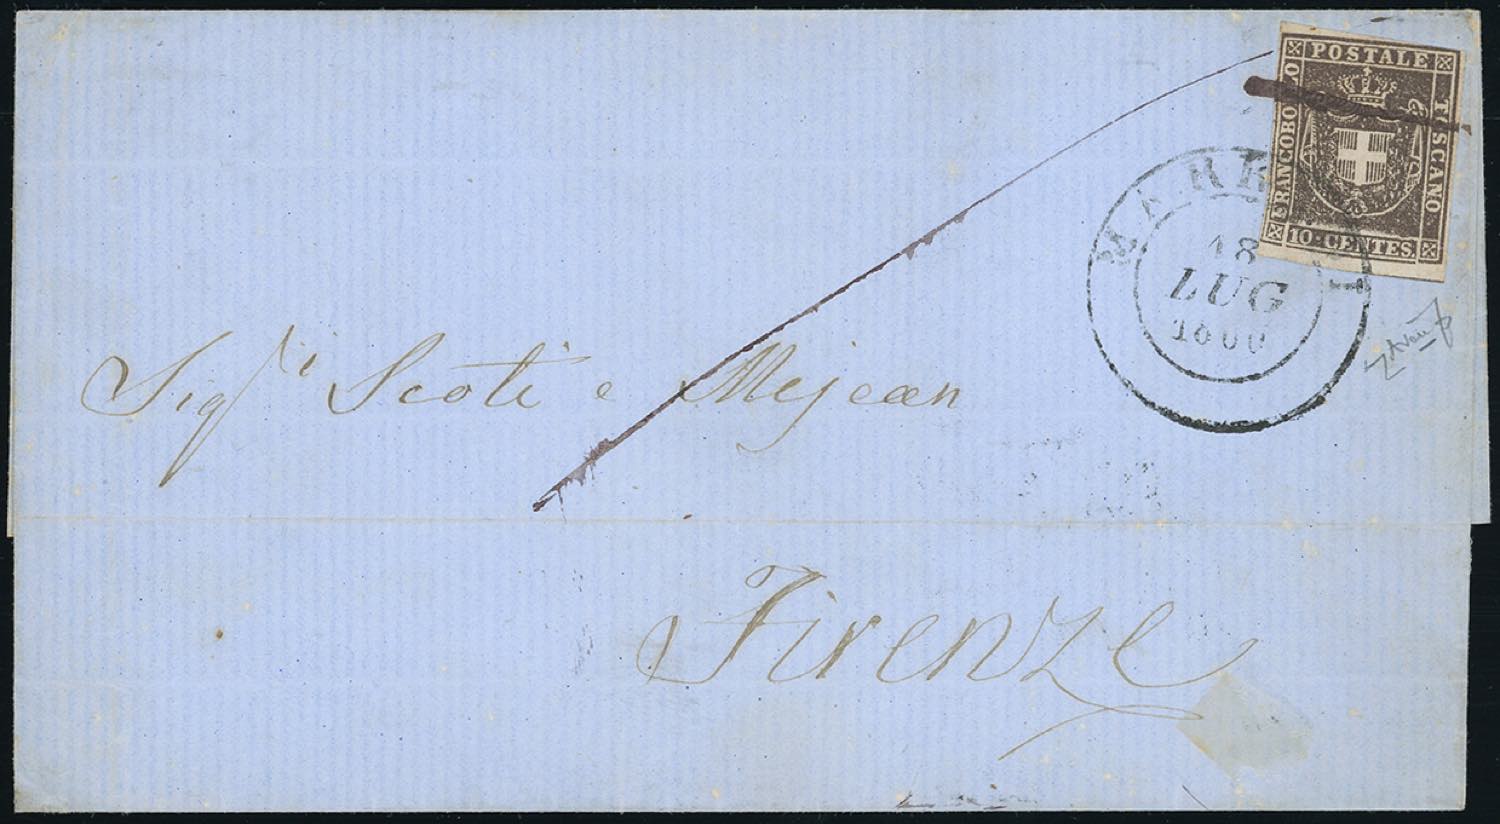 POSTALE
FRANCOBOLLO
TOSCANO
10·CENTES.
18
LUG
Sigri Scoti e Mejean
Firenze